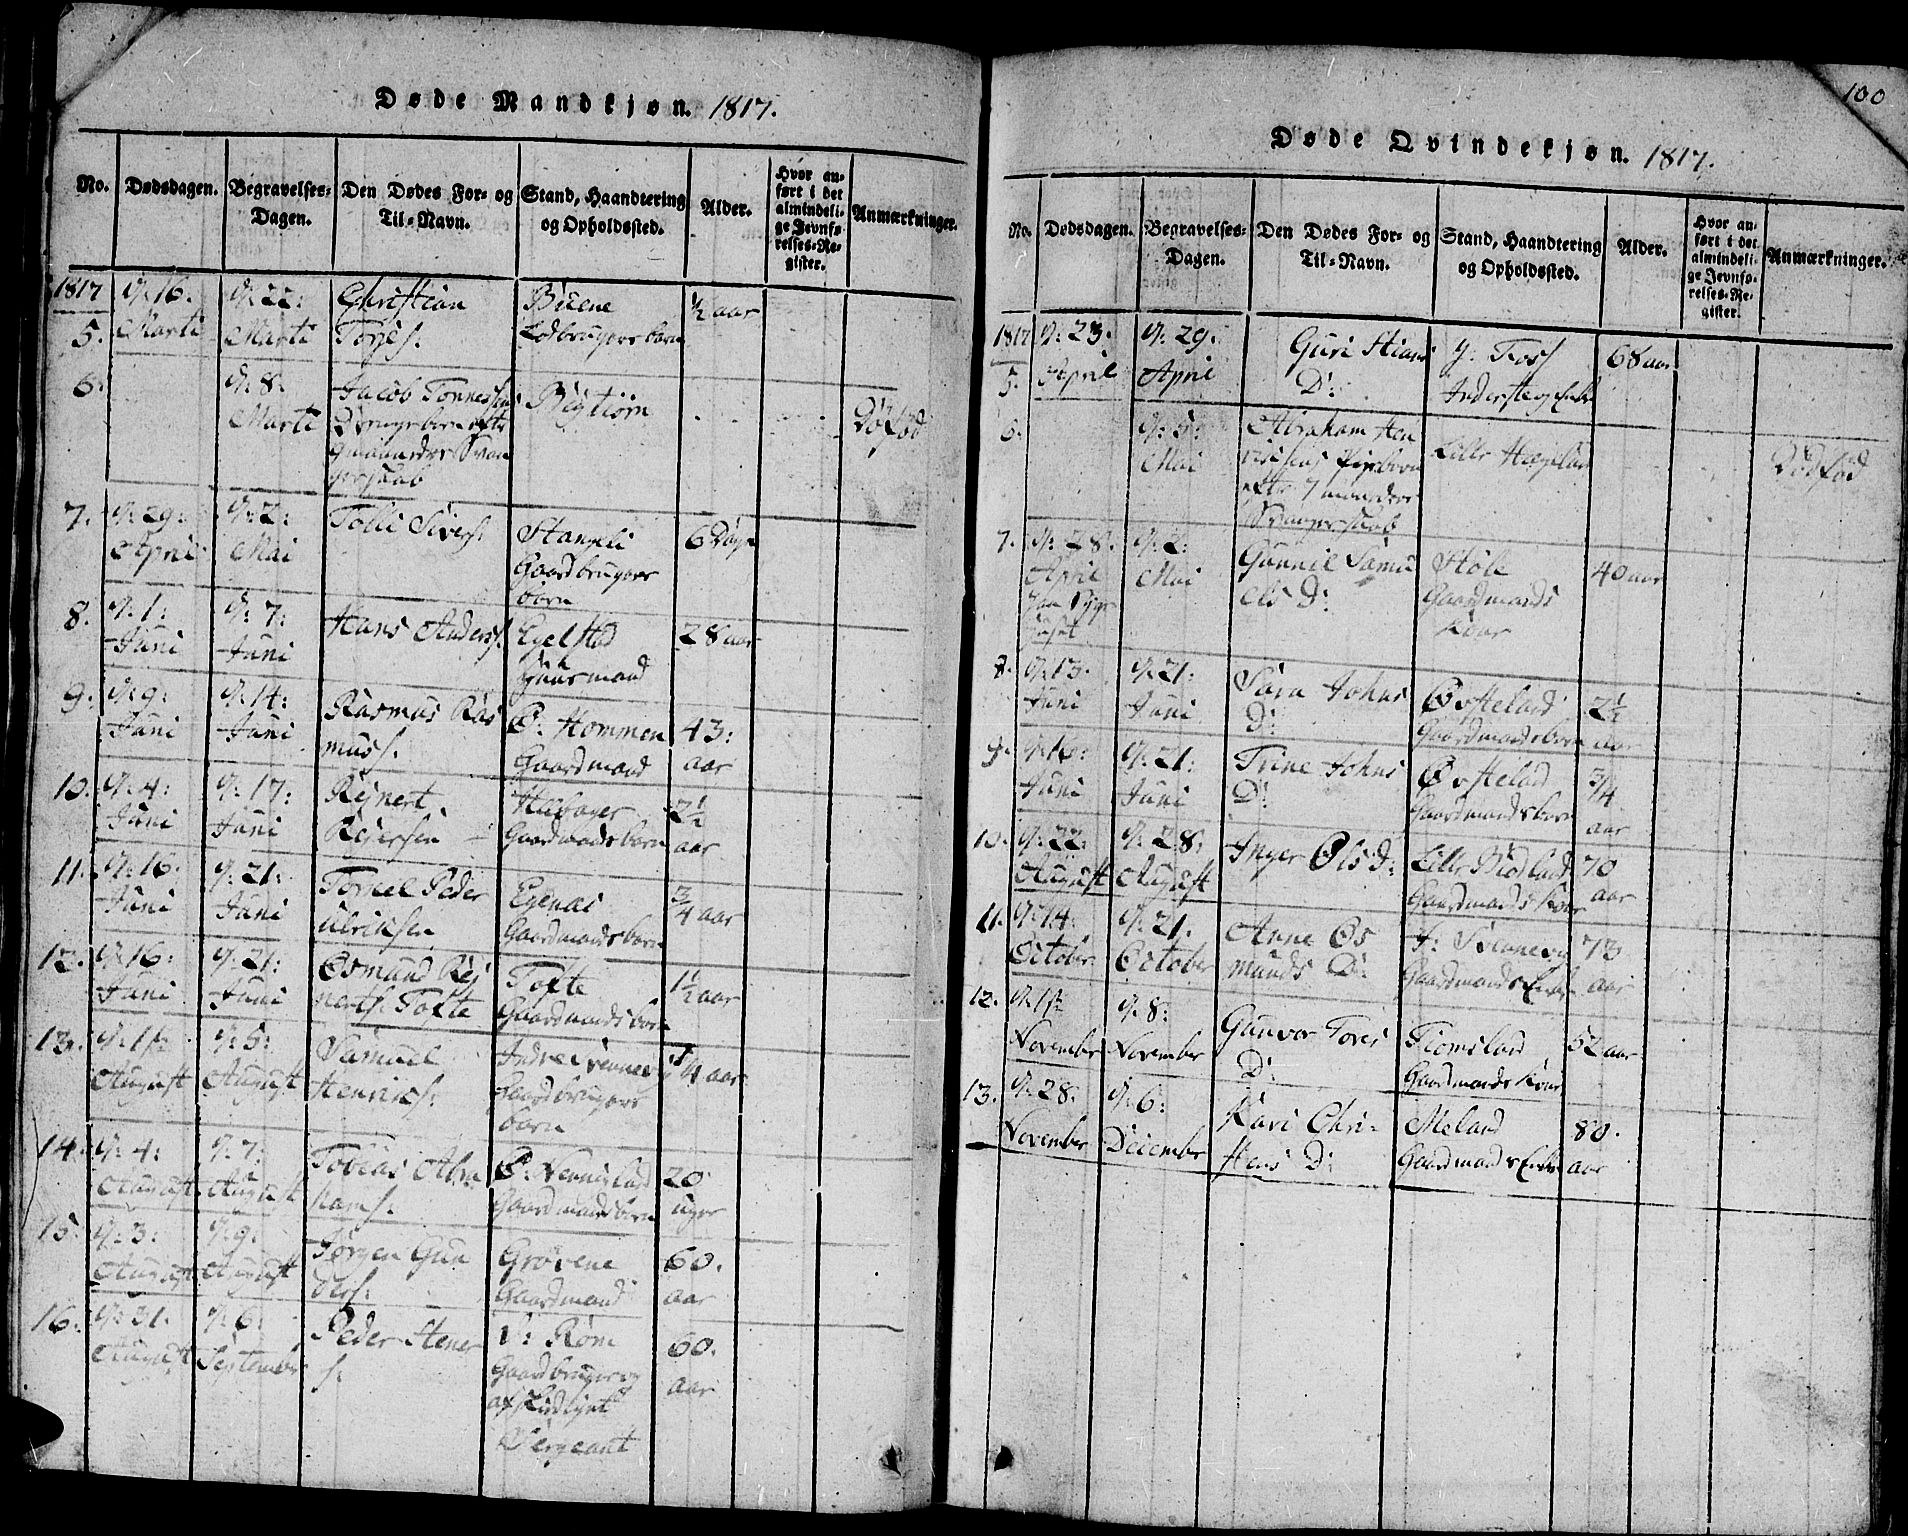 Døde Mandkjøn. 1817.
No. Dødsdagen. Begravelses-Dagen. Den Dødes For- og Til-Navn. Stand, Haandtering og Opholdssted. Alder. Hvor anført i det almindelige Jevnførelses-Register. Anmærkninger.
1817
5. d: 16. Marti d: 22: Marti Christian Torjes. Buene Lodbrugers barn ½ aar
6. d: 8. Marti Jacob Tønnessens maaneders Svangerskab Dödfød
7. d: 29: April d: 2: Mai Tolli Sivers: Stangeli Gaardbrugers barn 6 Dage
8. d: 1: Juni d: 7: Juni Hans Anders. Egelstad Huusmand 28 aar
9. d: 9: Juni d: 14: Juni Rasmus Rasmuss. Ø: Hommen Gaardmand 43: aar
10. d: 4: Juni d: 17: Juni Rejnert Rejersen Gaardmands barn 2½ aar
11. d: 16. Juni d: 21: Juni Torkel Peder Ulriksen Egenæs Gaardmands barn ¾ aar
12. d: 16: Juni d: 21: Juni Osmund Rejnerts. Tofte Tofte Gaardmands barn 1½ aar
13. d: 1ste August d: 5: August Samuel Henriks: Gaardbrugers barn ¼ aar
14. d: 4: August d: 7: August Tobias Abrahams. Ø: Gaardmands barn 20 uger
15. d: 3: August d: 9: August Jørgen Gunders: Grövene Gaardmand 60. aar
16. d: 31. August d: 6: September Peder Steners. V: Røm Gaardbruger og Sergeant 60. aar
100
Døde Qvindekjøn. 1817.
No. Dødsdagen. Begravelses-Dagen. Den Dødes For- og Til-Navn. Stand, Haandtering og Opholdssted. Alder. Hvor anført i det almindelige Jevnførelses-Register. Anmærkninger.
1817
5. d: 23. April d: 29: April Guri Stians D: Y. Foss Inderst og Enke 68 aar
6. d: 5: Mai Abraham Henriksens Pigebarn efter 7 maaneders Svangerskab Lille Dödfød
7. d: 28. April d: 2: Mai Gunnil Samuels D: Støle Gaardmands Kone 40 aar
8. d: 13. Juni d: 21: Juni Sara Johns D: Øvsteland Gaardmands barn 2½ aar
9. d: 16: Juni d: 21: Juni Trine Johns D: Øvsteland Gaardmands barn ¾ aar
10. d: 22: August d: 28: August Inger Ols D: Lille Gaardmands Kone 70 aar
11. d: 14: October d: 21. October Anne Osmunds D: Gaardmands Enke 73 aar
12. d: 1ste November d: 8: November Gunvor Tores D: Flomsland Gaardmands Kone 52 aar
13. d: 28. November d: 6: December Kari Christens D: Meland Gaardmands Enke 80. aar